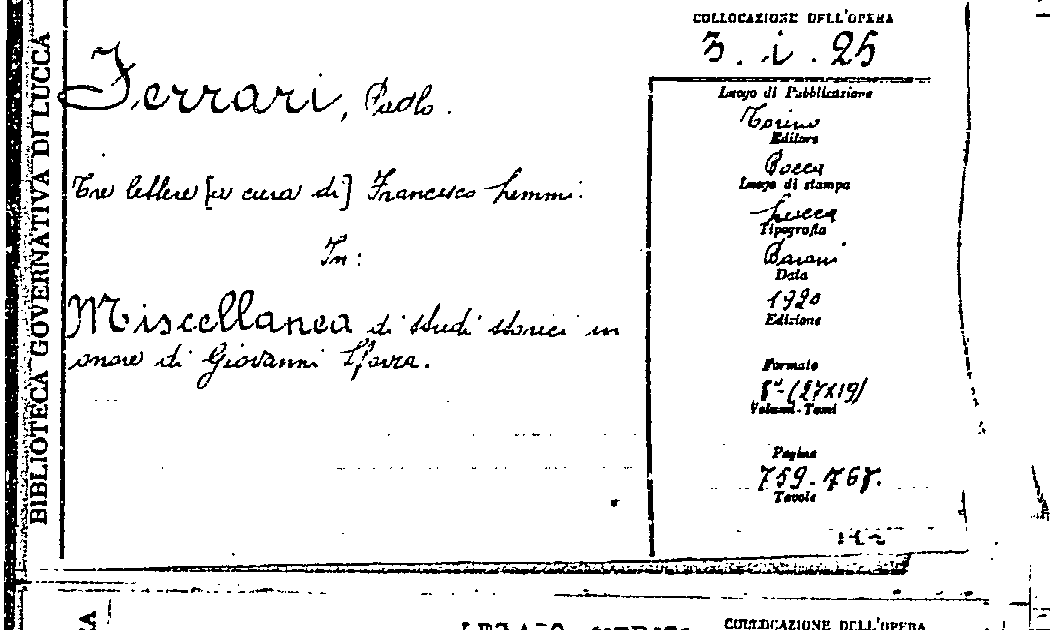 BIBLIOTECA GOVERNATIVA DI LUCCA
COLLOCAZIONE DELL'OPERA
3. i. 25
Ferrari, Paolo.
Tre lettere [a cura di] Francesco Lemmi.
In:
Miscellanea di studi storici in
onore di Giovanni Sforza.
Luogo di Pubblicazione
Torino
Editore
Bocca
Luogo di stampa
Lucca
Tipografia
Baroni
Data
1920
Edizione
Formato
8°-(27x19)
Volumi-Tomi
Pagine
759-768.
Tavole
COLLOCAZIONE DELL'OPERA